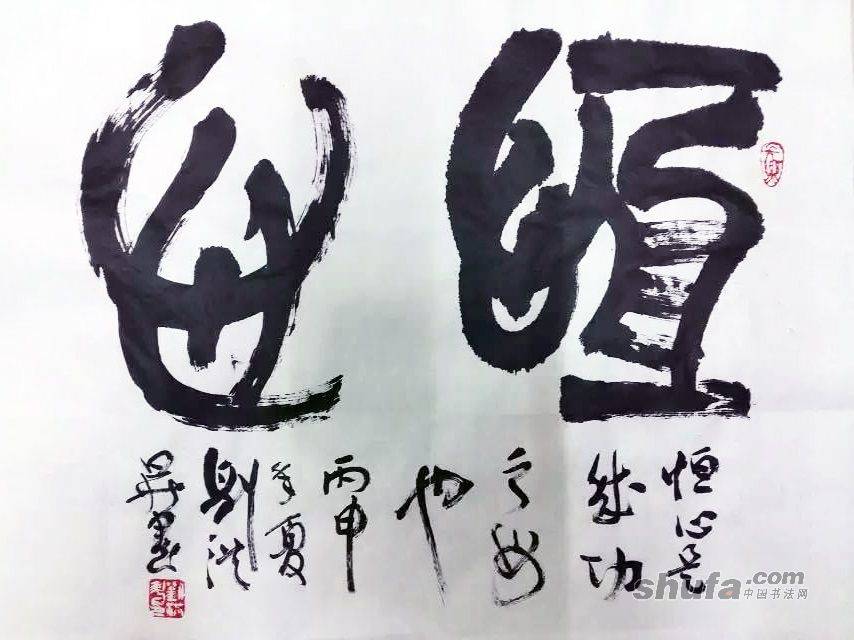 恒心
恒心是
成功
之母
也
丙申
年夏
刘洪
昇書
shufa.com
中国书法网